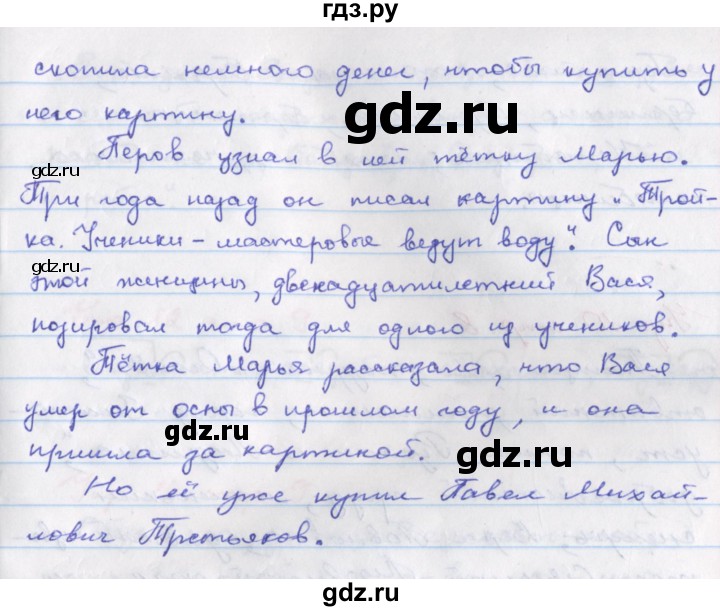 гдз.ру
скопила немного денег, чтобы купить у
него картину.
gdz.ru
gdz.ru
Перов узнал в ней тётку Марью.
Три года назад он писал картину „Трой-
ка. Ученики – мастеровые ведут воду“. Сын
gdz.ru
этой женщины, двенадцатилетний Вася,
позировал тогда для одного из учеников.
Тётка Марья рассказала, что Вася
умер от оспы в прошлом году, и она
gdz.ru
gdz.ru
пришла за картиной.
Но её уже купил Павел Михай-
лович Третьяков.
gdz.ru